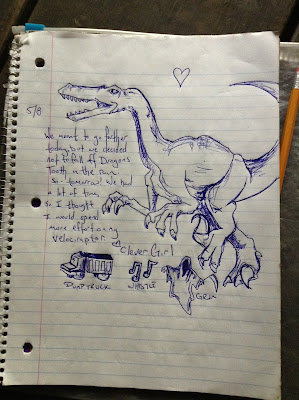 5/8
We meant to go farther
today, but we decided
not to fall off Dragons
Tooth in the rain
So tomorrow. We had
a bit of time
So I thought
I would spend
more effort on my
velociraptor.
Clever Girl
DUMPTRUCK